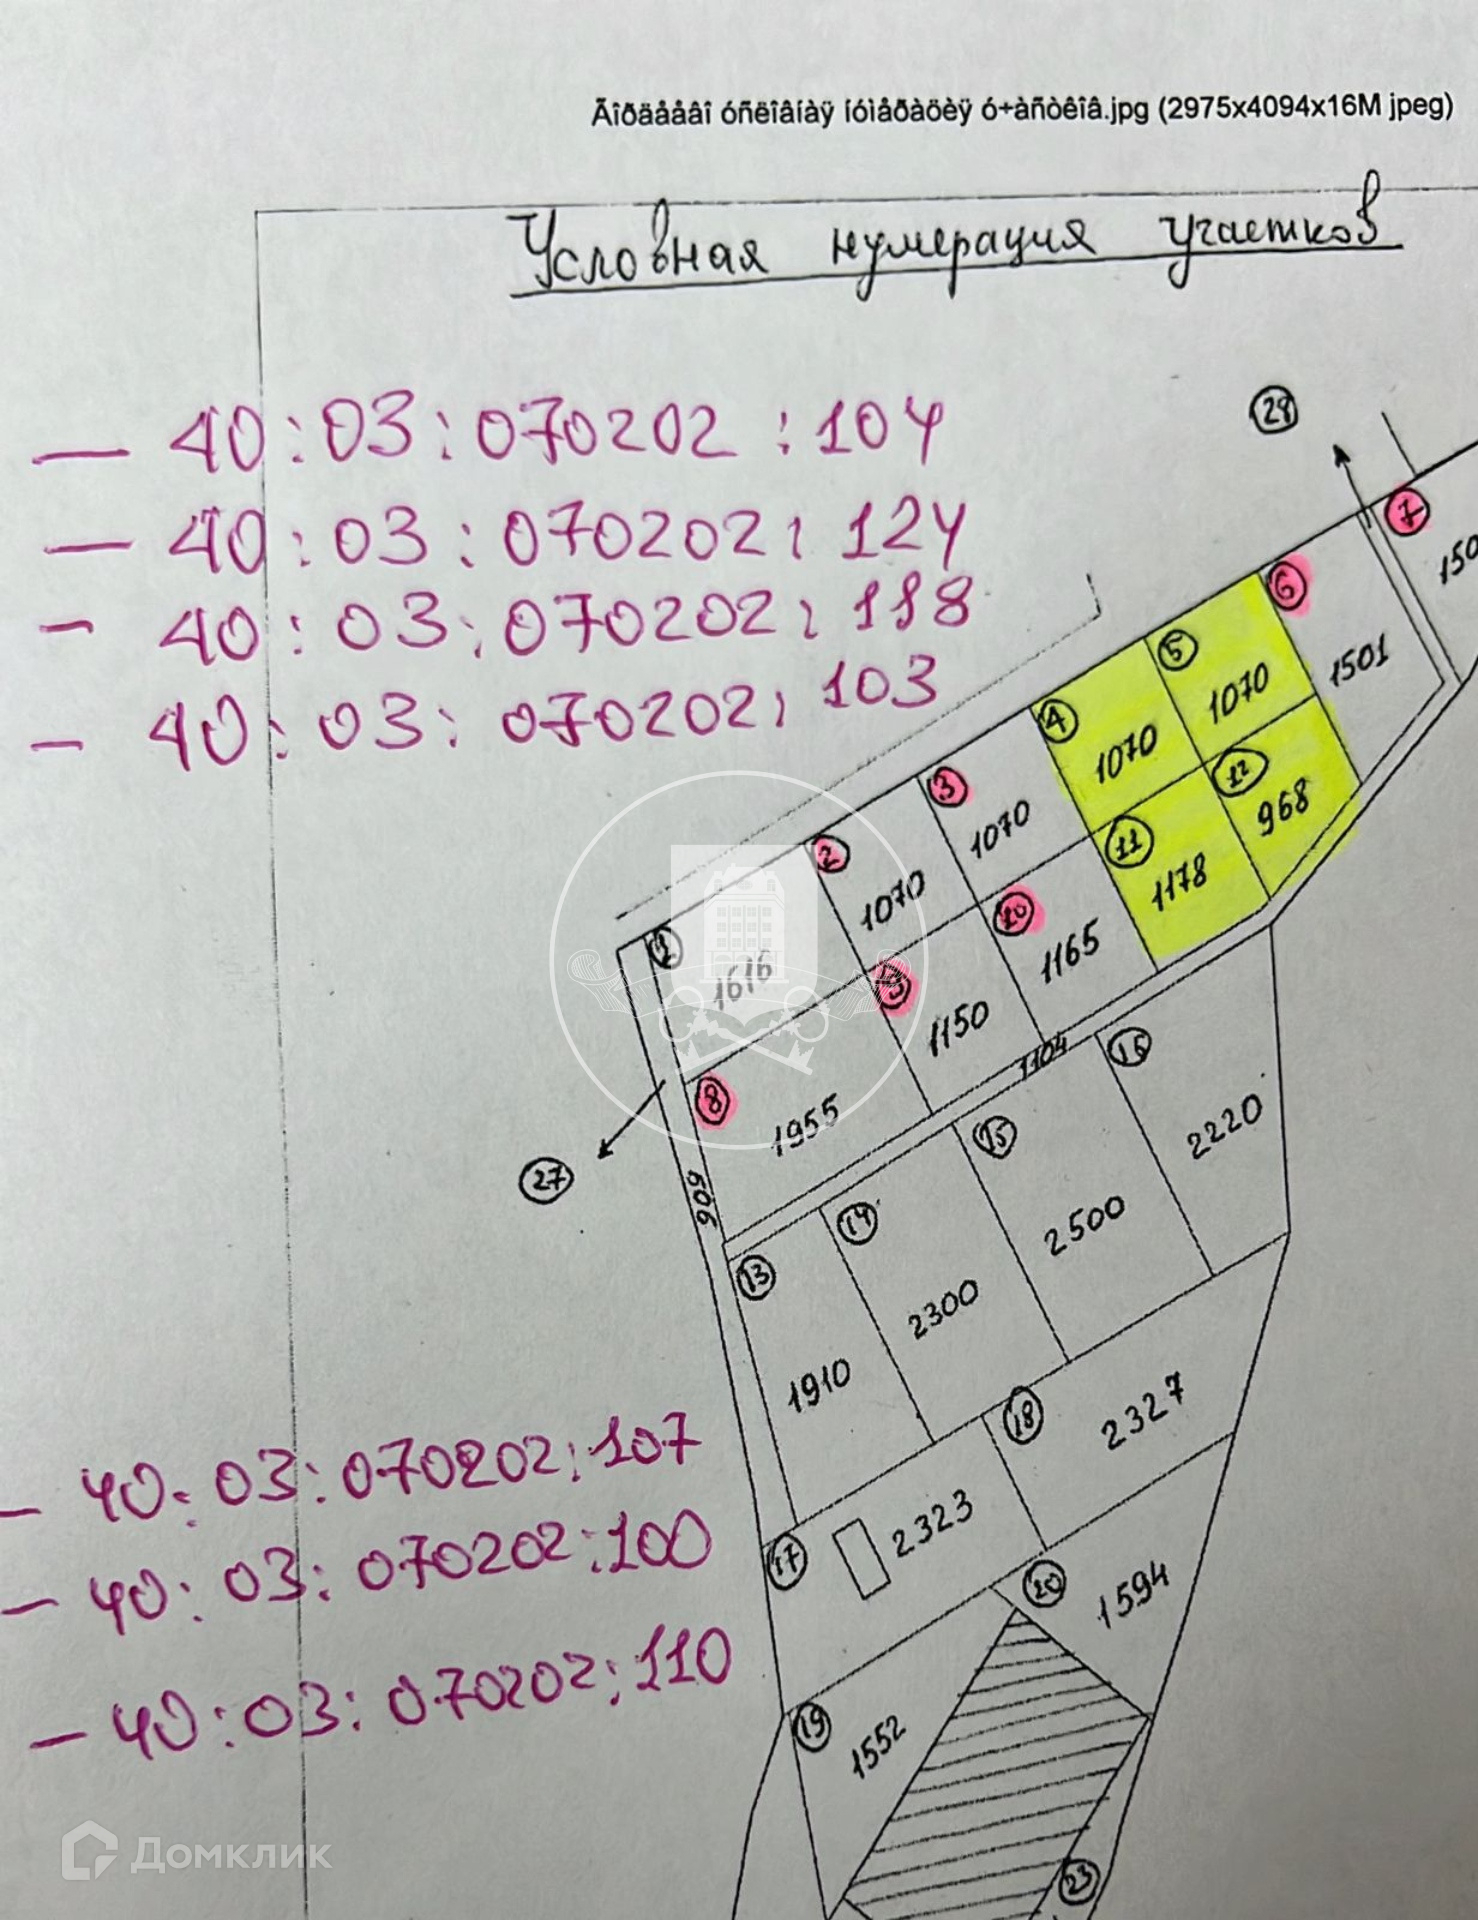 Ãîðäååâî óñëîâíàÿ íóìåðàöèÿ ó÷àñòêîâ.jpg (2975x4094x16M jpeg)
Условная нумерация участков
- 40:03:070202:104
- 40:03:070202:124
- 40:03:070202:118
- 40:03:070202:103
28
7
150
6
1501
5
1070
4
1070
12
968
3
1070
11
1178
2
1070
10
1165
1
1616
1150
8
1955
1104
16
2220
27
506
15
2500
14
2300
13
1910
18
2327
- 40:03:070202:107
- 40:03:070202:100
- 40:03:070202:110
17
2323
20
1594
19
1552
23
Домклик